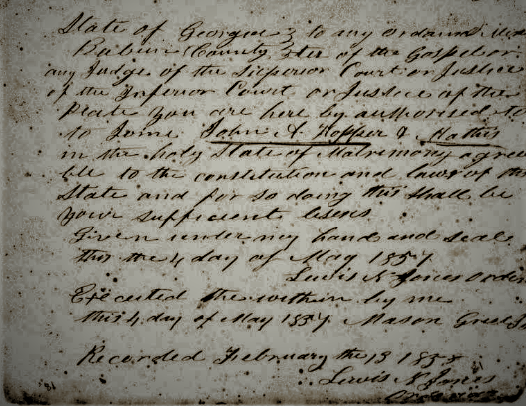 State of Georgia } to any ordained
County of the Gospel or
any Judge of the Superior Court or Justice
of the Inferior Court or Justice of the
Peace you are here by authorised to
to Joine John A. &
in the holy State of Matrimony
to the constitution and laws of
State and for so doing this shall be
your sufficient
Given under my hand and seale
this the 4 day of May 185
Lewis Jones
Executed the within by me
this 4 day of May 185 Mason
Recorded February the 13 185
Lewis Jones